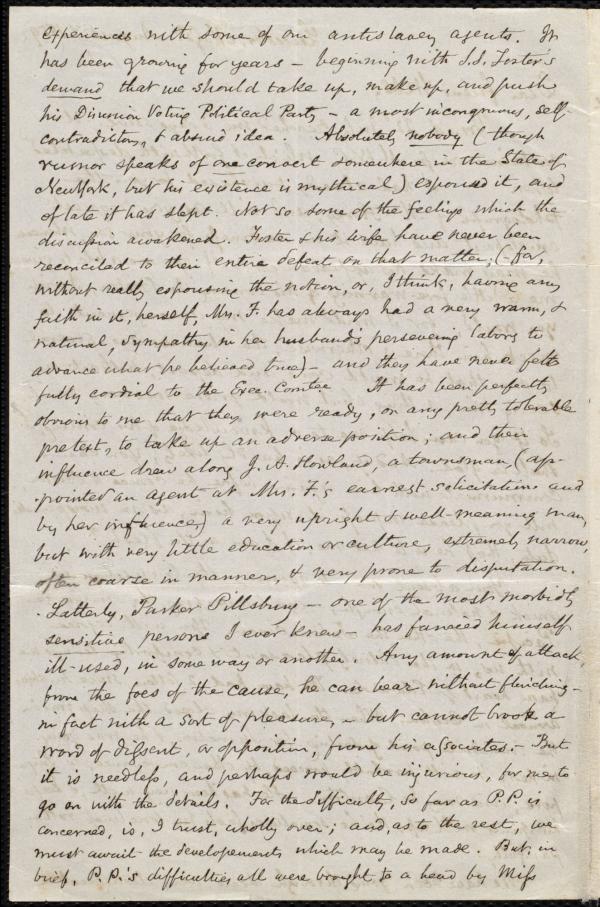 experiences with some of our antislavery agents. It
has been growing for years – beginning with S.S. Foster's
demand that we should take up, make up, and push
his Disunion Voting Political Party – a most incongruous, self-
contradictory, & absurd idea. Absolutely nobody (though
rumor speaks of one convert somewhere in the State of
New York, but his existence is mythical) espoused it, and
of late it has slept. Not so some of the feelings which the
discussion awakened. Foster & his wife have never been
reconciled to their entire defeat on that matter; (– for,
without really espousing the notion, or, I think, having any
faith in it, herself, Mrs. F. has always had a very warm, &
natural, sympathy in her husband's persevering labors to
advance what he believed true) – and they have never felt
fully cordial to the Exec. Comtee It has been perfectly
obvious to me that they were ready, on any pretty tolerable
pretext, to take up an adverse position; and their
influence drew along J. A. Howland, a townsman, (ap-
-pointed an agent at Mrs. F.'s earnest solicitations and
by her influence,) a very upright & well-meaning man,
but with very little education or culture, extremely narrow,
often coarse in manner, & very prone to disputation.
Latterly, Parker Pillsbury – one of the most morbidly
sensitive persons I ever knew – has fancied himself
ill-used, in some way or another. Any amount of attack
from the foes of the cause, he can bear without flinching –
in fact with a sort of pleasure, – but cannot brook a
word of dissent, or opposition, from his associates. – But
it is needless, and perhaps would be injurious, for me to
go on with the details. For the difficulty, so far as P.P. is
concerned, is, I trust, wholly over; and, as to the rest, we
must await the developements which may be made. But, in
brief, P.P.'s difficulties all were brought to a head by Miss